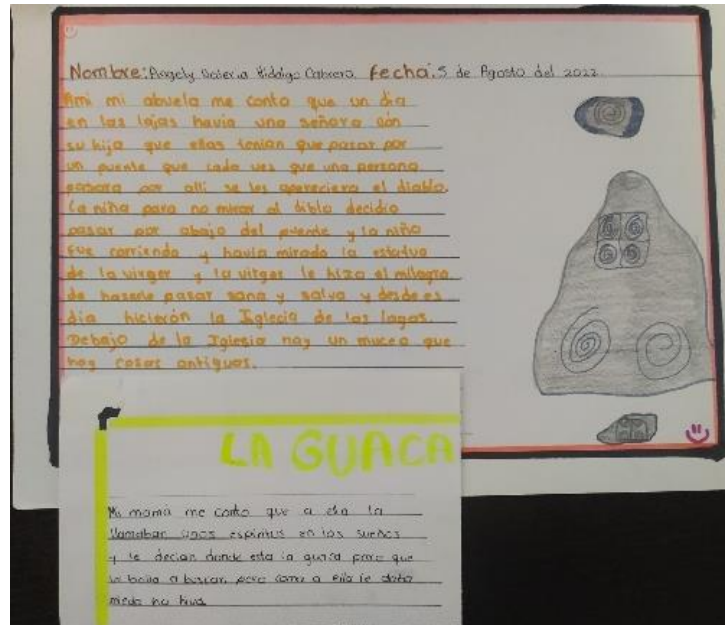 Nombre: Angely Valeria Hidalgo Cabrera. fecha: 5 de Agosto del 2022
Ami mi abuela me conto que un dia
en las lajas havia una señora con
su hija que ellas tenian que pasar por
un puente que cada ves que una persona
pasara por alli se les apereciera el diablo.
La niña para no mirar al diblo decidio
pasar por abajo del puente y la niña
fue corriendo y havia mirado la estatua
de la virger y la virger le hizo el milagro
de hazerle pasar sana y salva y desde es
dia hicierón la Iglecia de las lagas.
Debajo de la Iglesia hay un museo que
hay cosas antiguas.
LA GUACA
Mi mamá me conto que a ella la
llamaban unos espiritus en los sueños
y le decian donde esta la guaca para que
la a buscar pero como a ella le daba
miedo no